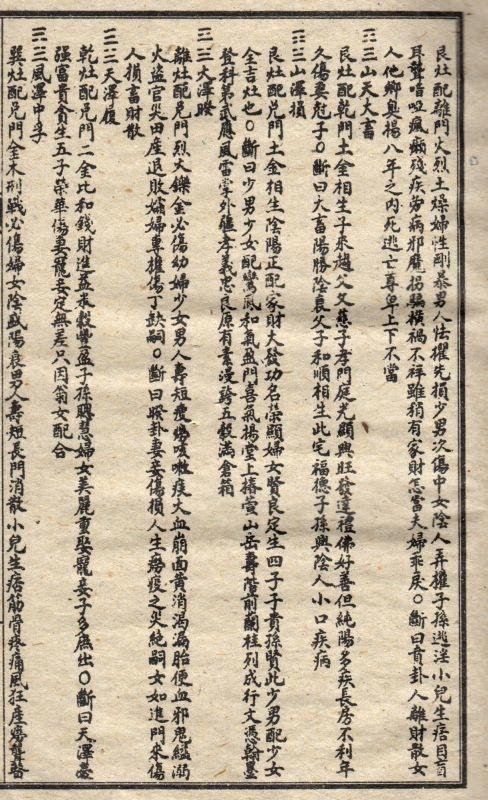 艮灶配離門火烈土燥婦性剛暴男人怯懼先損少男次傷中女陰人弄權子孫逃淫小兒生痞目盲
耳聾喑啞瘋癲殘疾勞病邪魔拐騙橫禍不祥雖稍有家財怎當夫婦乖戾○斷曰賁卦人離財散女
人他鄉臭揚八年之內死逃亡尊卑上下不當
山天大畜
艮灶配乾門土金相生子來趨父父慈子孝門庭光顯興旺發達禮佛好善但純陽多疾長房不利年
久傷妻剋子○斷曰大畜陽勝陰衰父子和順相生此宅福德子孫興陰人小口疾病
山澤損
艮灶配兌門土金相生陰陽正配家財大發功名榮顯婦女賢良定生四子子貴孫賢此少男配少女
全吉灶也○斷曰少男少女配鸞鳳和氣盈門喜氣揚堂上椿萱山岳壽階前蘭桂列成行文憑翰墨
登科第武應風雷掌外疆孝義忠良原有素漫誇五穀滿倉箱
火澤睽
離灶配兌門烈火鑠金必傷幼婦少女男人壽短癆咳嗽痰火血崩面黃消渴漏胎便血邪鬼縊溺
火盜官災田產退敗孀婦專權傷丁缺嗣○斷曰睽卦妻妾傷損人生癆疫之災絕嗣女如進門來傷
人損畜財散
天澤履
乾灶配兌門二金比和錢財進益米穀豐盈子孫聰慧婦女美麗重娶寵妾子多庶出○斷曰天澤
強富貴食生五子榮華傷妻寵妾定無差只因翁女配合
風澤中孚
巽灶配兌門金木刑戰必傷婦女陰盛陽衰男人壽短長門消散小兒生痞筋骨疼痛風狂產癆聾瞽